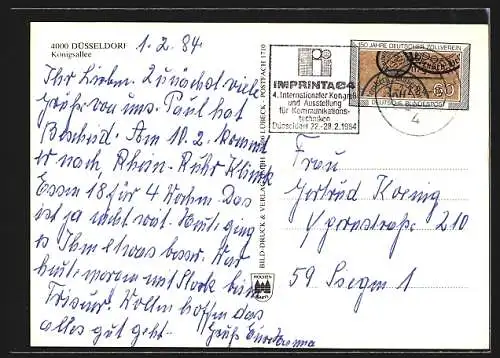 4000 DÜSSELDORF
Königsallee
1.2.84
Ihr Lieben. Zunächst viele
Grüße von uns. Paul hat
Bescheid. Am 10.2. kommt
er nach, Rhein-Ruhr Klinik
Essen 18 für 4 Wochen. Das
ist ja nicht weit. Heute ging
es Ihm etwas besser. War
heute morgen mit Stock beim
Friseur. Wollen hoffen das
alles gut geht. Gruß
BILD-DRUCK & VERLAG LÜBECK · POSTFACH 1710
IMPRINTA 84
4. Internationaler Kongreß
und Ausstellung
für Kommunikations-
techniken
Düsseldorf 22.-28.2.1984
150 JAHRE DEUTSCHER ZOLLVEREIN
DEUTSCHE BUNDESPOST
60
4
Frau
Gertrud Koenig
210
59 Siegen 1
HOLSTEN
KARTE